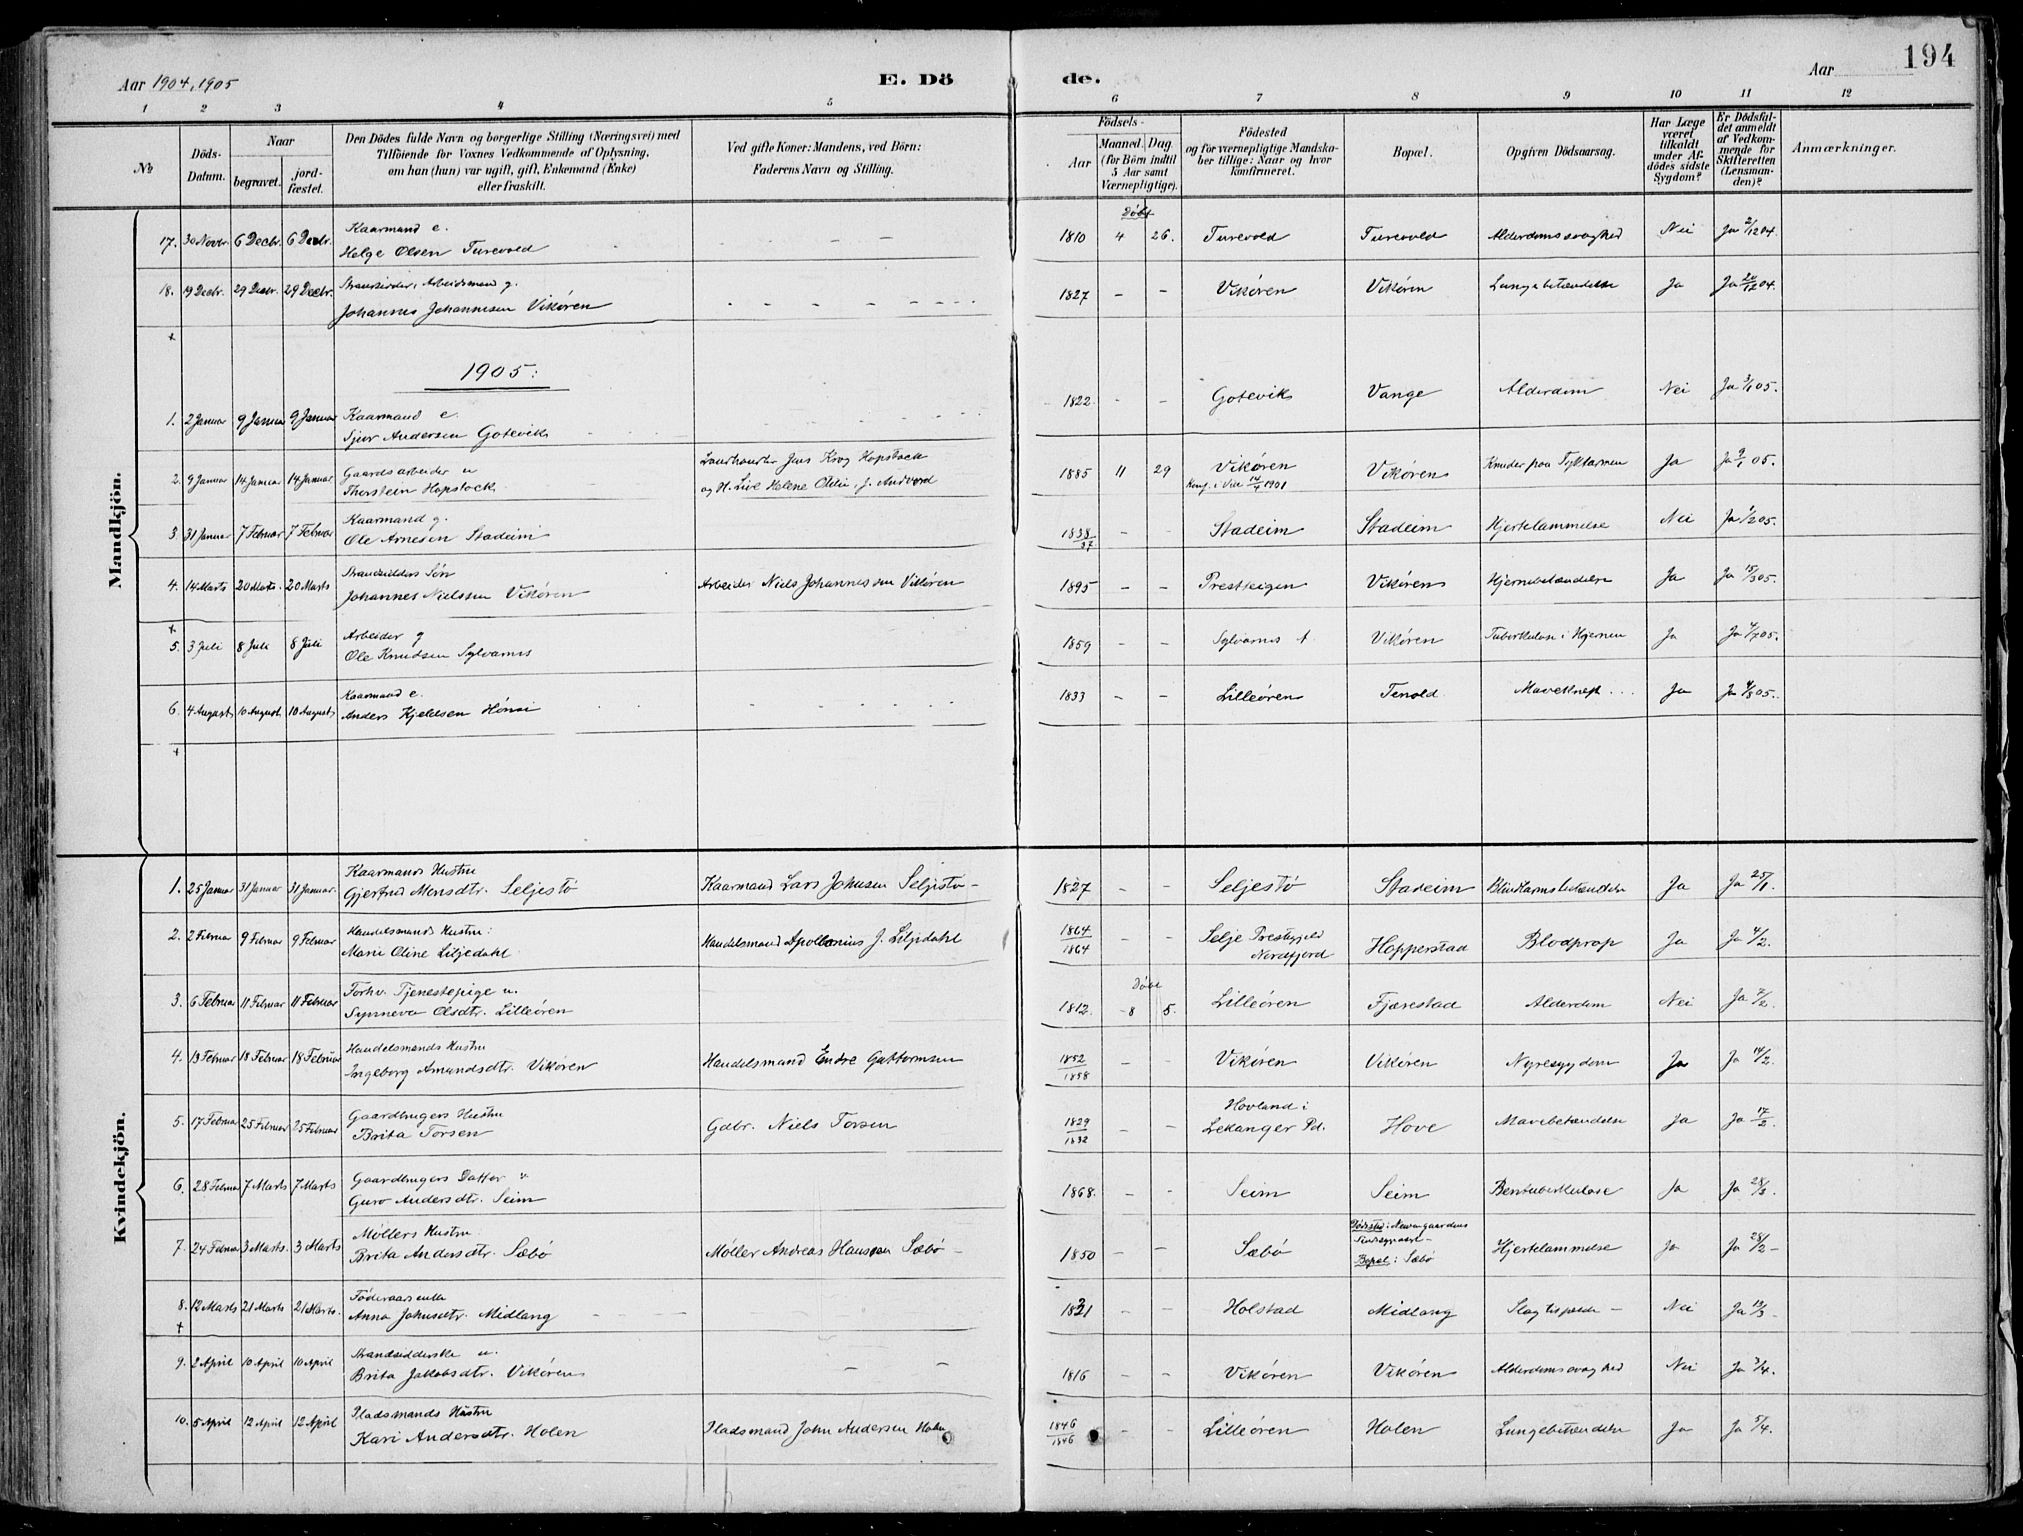 194
Aar 1904, 1905
E. Dö de.
Aar
1 2 3 4 5 6 7 8 9 10 11 12
No
Döds-Datum.
Naar
begravet.
jord-fæstet.
Den Dödes fulde Navn og borgerlige Stilling (Næringsvei) med
Tilföiende for Voxnes Vedkommende af Oplysning,
om han (hun) var ugift, gift, Enkemand (Enke)
eller fraskilt.
Ved gifte Koner: Mandens, ved Börn:
Faderens Navn og Stilling.
Födsels-
Aar
Maaned. Dag.
(for Börn indtil
5 Aar samt
Værnepligtige).
Födested
og for værnepligtige Mandska-
ber tillige: Naar og hvor
konfirmeret.
Bopæl.
Opgiven Dödsaarsag.
Har Læge
været
tilkaldt
under Af-
dödes sidste
Sygdom?
Er Dödsfal-
det anmeldt
af Vedkom-
mende for
Skifteretten
(Lensman-
den)?
Anmærkninger.
Mandkjön.
Döbt
17. 30 Novbr. 6 Decbr. 6 Decbr. Kaarmand e.
Helge Olsen Turevold - - - 1810 4 26. Turevold Turevold Alderdomssvaghed Nei Ja 2/12 04.
18. 19 Decbr. 29 Decbr. 29 Decbr. Strandsidder, Arbeidsmand g.
Johannes Johannesen Vikören 1827 - - Vikören Vikören Lungebetændelse Ja Ja 20/12 04.
1905:
1. 2 Januar 9 Januar 9 Januar Kaarmand e.
Sjur Andersen Gotevik 1822. - - Gotevik Vange Alderdom Nei Ja 3/1 05.
2. 9 Januar 14 Januar 14 Januar Gaardsarbeider u
Thorstein Hopstock Landhandler Jens Krog Hopstock
og H. Live Helene Oldin, f. Andvord 1885 11 29 Vikören
Konf. i Vik 14/4 1901 Vikören Knuder paa Tyktarmen Ja Ja 9/1 05.
3. 31 Januar 7 Februar 7 Februar Kaarmand g.
Ole Arnesen Stadeim 1838/37 - - Stadeim Stadeim Hjertelammelse Nei Ja 1/2 05.
4. 14 Marts 20 Marts 20 Marts Strandsidders Sön
Johannes Nielssen Vikören Arbeider Niels Johannessen Vikören 1895 - - Presteigen Vikören Hjernebetændelse Ja Ja 15/3 05.
5. 3 Juli 8 Juli 8 Juli Arbeider g
Ole Knudsen Sylvarnes 1859 - - Sylvarnes Vikören Tuberkulose i Hjernen Ja Ja 4/7 05.
6. 4 August 10 August 10 August Kaarmand e.
Anders Kjeldsen Hönsi 1833 - - Lilleören Tenold. Mavekræft Ja Ja 4/8 05.
Kvindekjön.
1. 25 Januar 31 Januar 31 Januar. Kaarmands Hustru
Gjertrud Monsdtr. Seljestö Kaarmand Lars Johnsen Seljestö - 1827 - - Seljestö Stadeim Blindtarmsbetændelse Ja Ja 25/1.
2. 2 Februar 9 Februar 9 Februar Handelsmands Hustru:
Marie Oline Liljedahl Handelsmand Apollonius J. Liljedahl 1864/1864 - - Selje Prestegjeld
Nordfjord Hopperstad Blodprop Ja Ja 4/2.
Döbt
3. 6 Februar 11 Februar 11 Februar Forhv. Tjenestepige u.
Synneva Olsdtr. Lilleören 1812. 8 5. Lilleören Fjærestad Alderdom Nei Ja 7/2.
4. 13 Februar 18 Februar 18 Februar Handelsmands Hustru
Ingeborg Amundsdtr. Vikören Handelsmand Endre Guttormsen 1852/1858 - - Vikören Vikören Nyresygdom Ja Ja 14/2.
5. 17 Februar 25 Februar 25 Februar Gaardbrugers Hustru
Brita Torsen Gdbr. Niels Torsen 1829/1832 - - Hovland i
Lekanger Pd. Hove Mavebetændelse Ja Ja 17/2
6. 28 Februar 7 Marts 7 Marts Gaardbrugers Datter u
Guro Andersdtr. Seim 1868. - - Seim Seim Bentuberkulose Ja Ja 28/3.
7. 24 Februar 3 Marts. 3 Marts Möllers Hustru
Brita Andersdtr. Sæbö Möller Andreas Hanssen Sæbö - 1850 - - Sæbö Dödssted: Neevengaardens
Sindssygeasyl -
Bopæl: Sæbö Hjertelammelse Ja Ja 28/2 -
8. 12 Marts 21 Marts 21 Marts. Föderaadsenke
Anna Johnsdtr. Midlang 1821 - - Holstad Midlang Slagtilfælde - Nei Ja 13/3.
9. 2 April 10 April 10 April Strandsidderske u.
Brita Jakobsdtr. Vikören - - 1816 - - Vikören Vikören Alderdomssvaghed Nei Ja 3/4.
10. 5 April 12 April 12 April Pladsmands Hustru
Kari Andersdtr. Holen Pladsmand John Andersen Holen 1846/1846 - - Lilleören Holen Lungebetændelse Ja Ja 5/4.